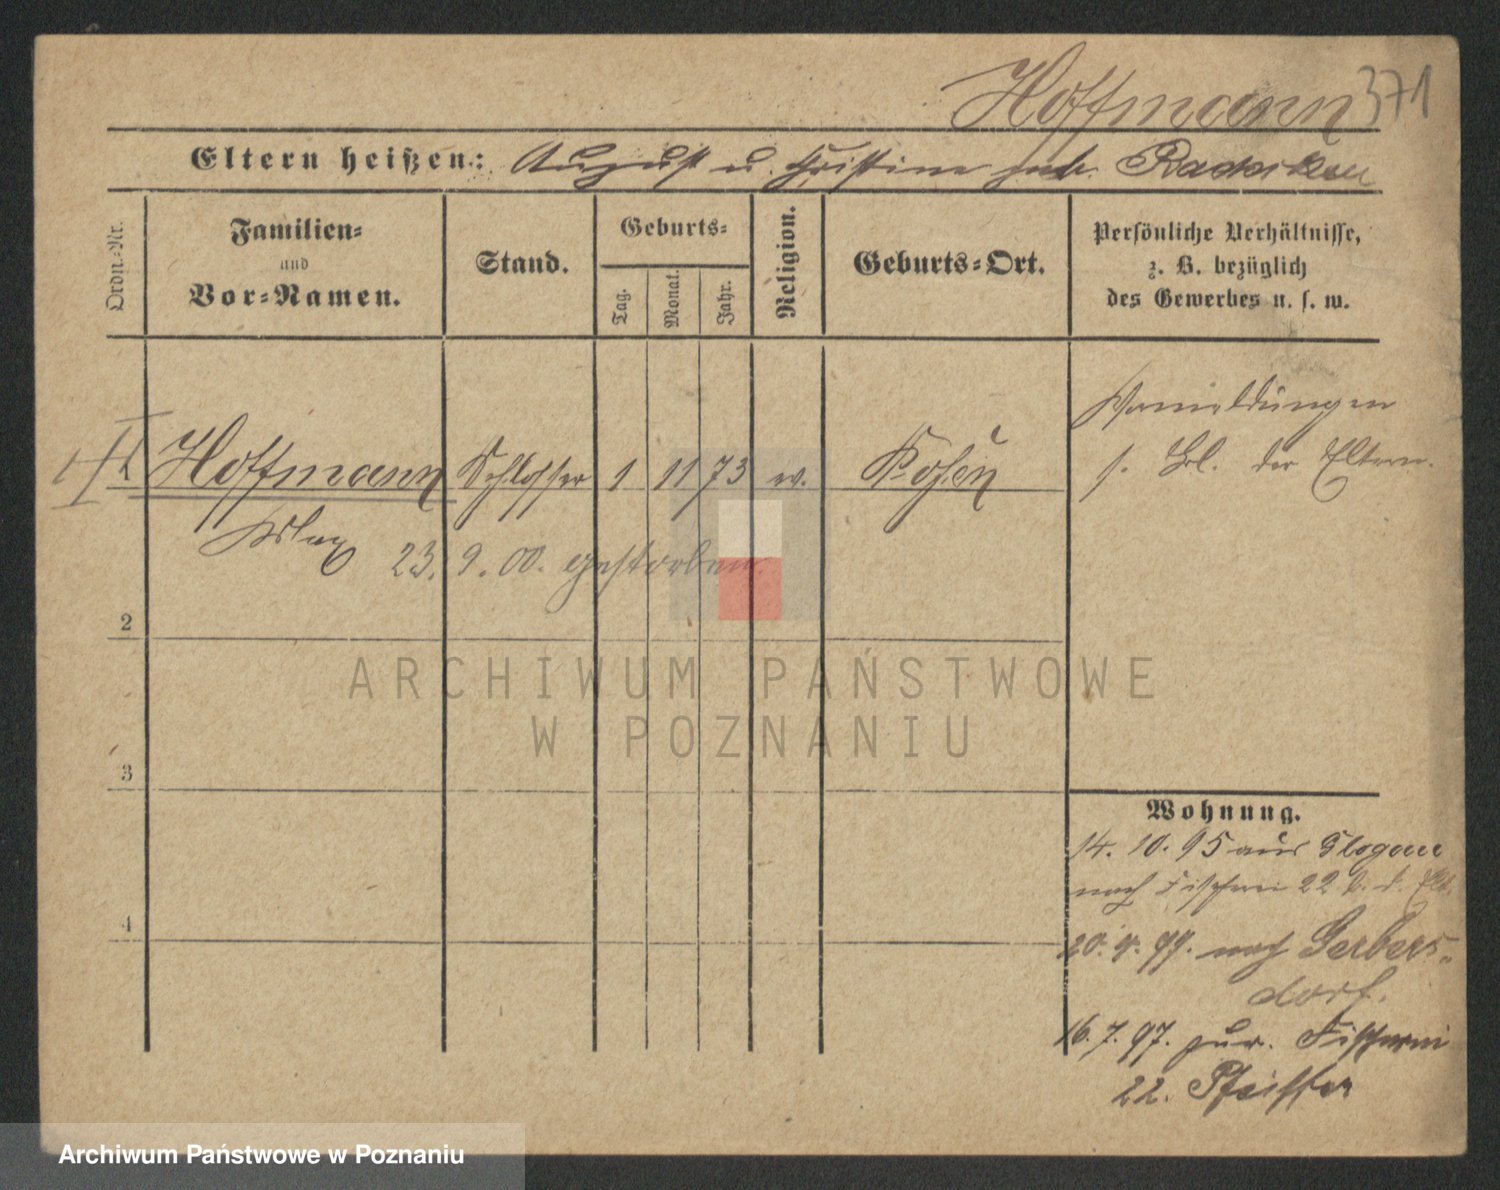 Hoffmann 371
Eltern heißen: August u. Christine geb.
Ordn.-Nr.
Familien-
und
Vor-Namen.
Stand.
Geburts-
Tag.
Monat.
Jahr.
Religion.
Geburts-Ort.
Persönliche Verhältnisse,
z. B. bezüglich
des Gewerbes u. s. w.
Hoffmann Schlosser 1 11 73 ev. Posen
Max
23. 9. 00. gestorben.
Vormeldungen
s. Bl. der Eltern.
2
3
4
Wohnung.
14. 10. 95 aus Glogau
nach Fischerei 22 b. d. Elt.
20. 4. 97. nach Gerbers-
dorf.
16. 7. 97. zur. Fischerei
22. Pfeiffer
ARCHIWUM PAŃSTWOWE
W POZNANIU
Archiwum Państwowe w Poznaniu